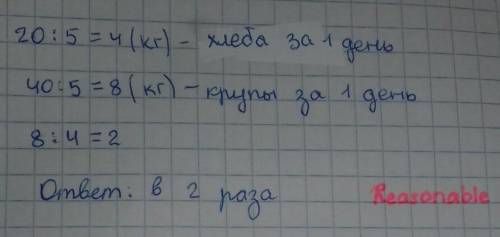 20:5=4(кг)- хлеба за 1 день
40:5=8(кг)-крупы за 1 день
8:4=2
Ответ: в 2 раза Reasonable